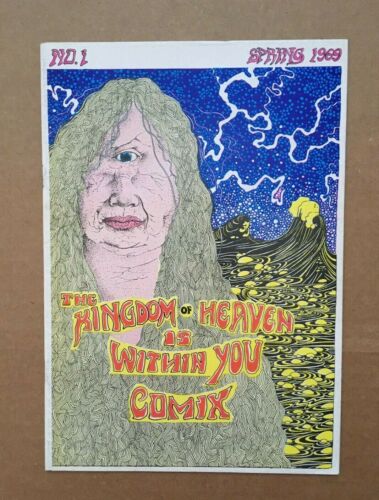 NO. 1 SPRING 1969
THE
KINGDOM OF HEAVEN
IS
WITHIN YOU
COMIX